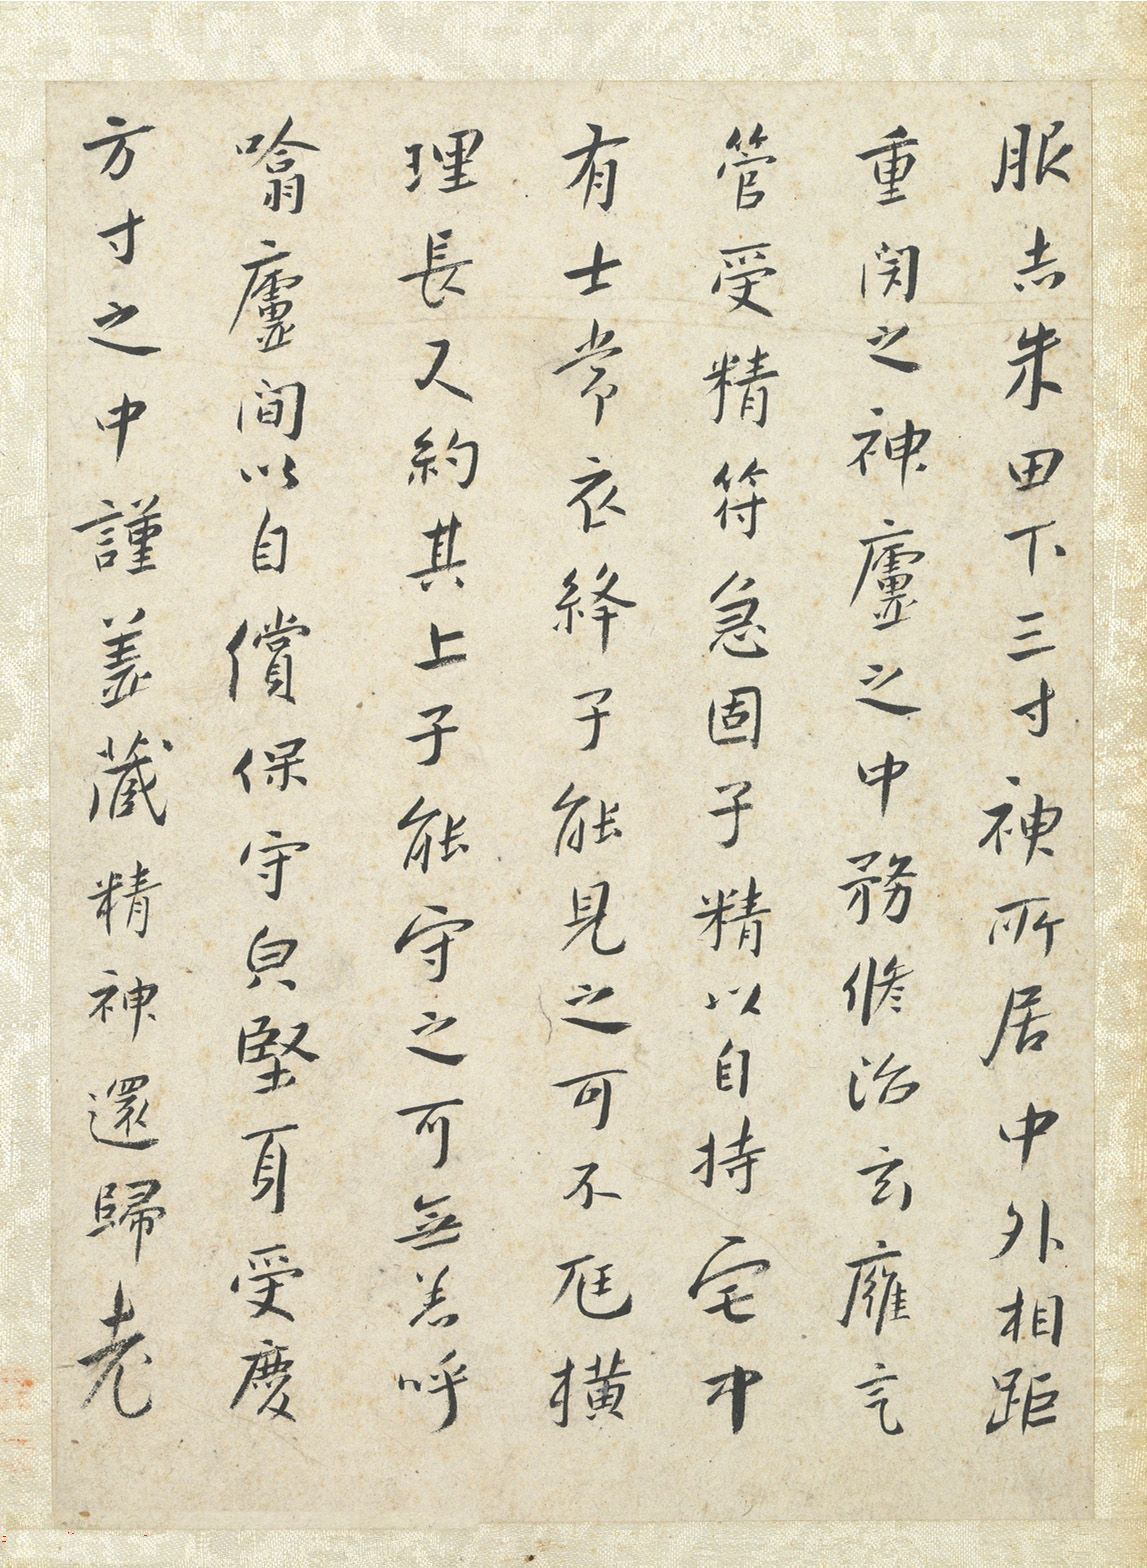 服志朱田下三寸神所居中外相距
重閇之神廬之中務脩治玄廱氣
管受精符急固子精以自持宅中
有士常衣絳子能見之可不尫橫
理長又約其上子能守之可無恙呼
噏廬間以自償保守皃堅身受慶
方寸之中謹蓋藏精神還歸老